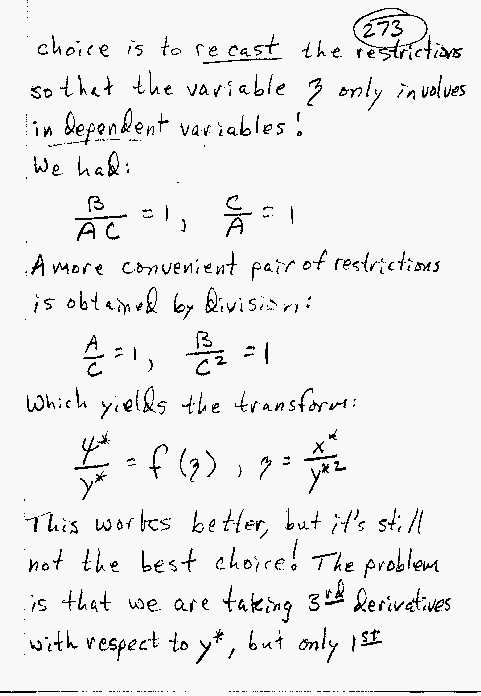 273
choice is to recast the restrictions
so that the variable ʒ only involves
independent variables!
We had:
B/AC = 1, C/A = 1
A more convenient pair of restrictions
is obtained by division:
A/C = 1, B/C² = 1
Which yields the transform:
ψ*/y* = f(ʒ), ʒ = x*/y*²
This works better, but it's still
not the best choice! The problem
is that we are taking 3rd derivatives
with respect to y*, but only 1st